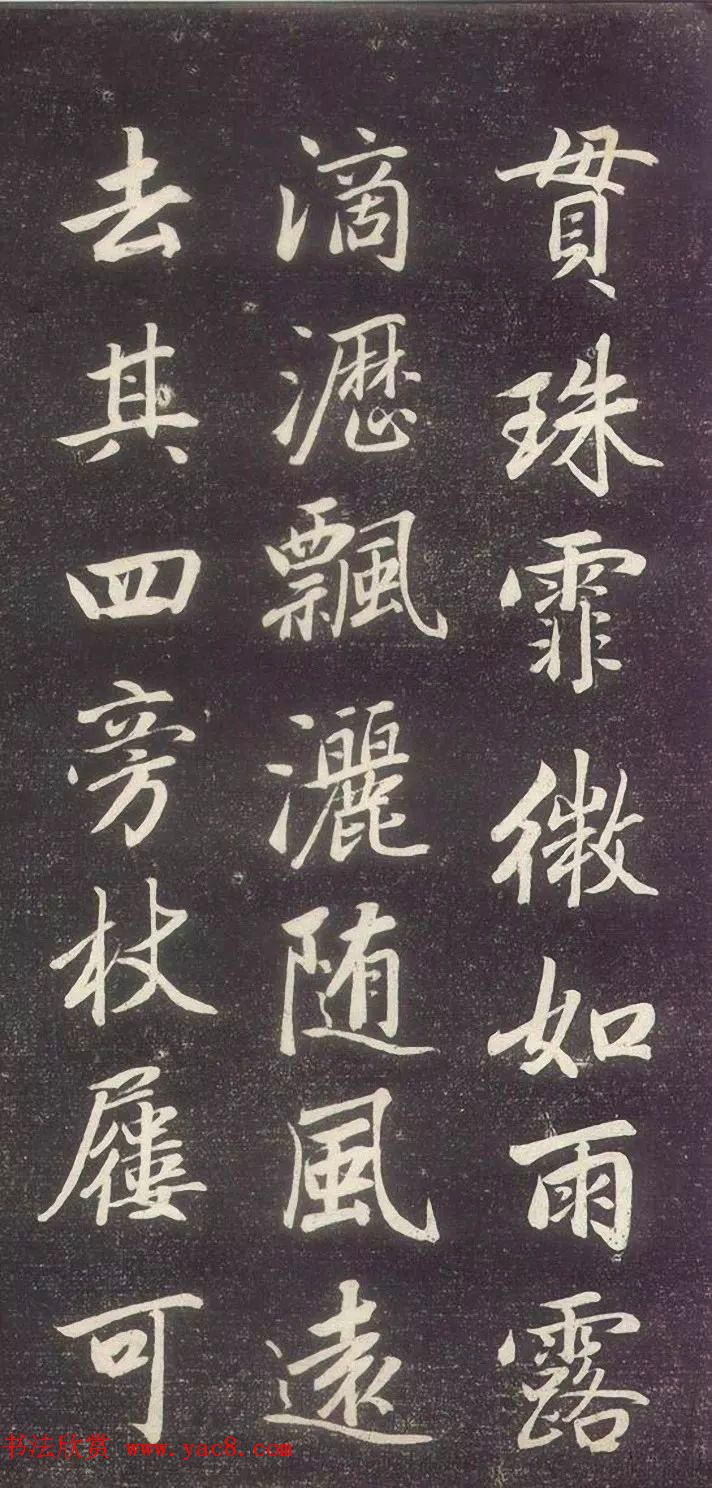 貫珠霏微如雨露
滴瀝飄灑随風遠
去其四旁杖屨可
书法欣赏 www.yac8.com